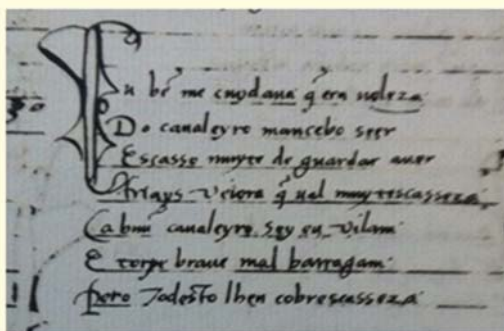 Eu bẽ me cuydaua q̃ era uoleza
Do caualeyro mancebo seer
Escasso muyto de guardar auer
Mays veiora q̃ ual muytescasseza
Ca hnũ caualeyro sey eu vilam
E torpe braue mal barragam
Pero Todesto lhen cobrescasseza